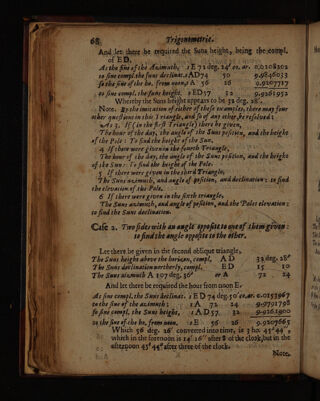 68 Trigonometrie.
And let there be required the Suns height, being the compl.
of ED.
As the sine of the Azimuth, IE 72 deg. 24' co. ar. 0.0208202
to sine compl. the suns declinat. IAD 74 50 9.9846033
so the sine of the ho. from noon, A 56 26 9.9207717
to sine compl. the suns height. IED 57 32 9.9261952
Whereby the Suns height appears to be 32 deg. 28'.
Note. By the imitation of either of these examples, there may four
other questions in this Triangle, and so of any other be resolved:
As 3. If (in the first Triangle) there be given,
The hour of the day, the angle of the Suns position, and the height
of the Pole: To find the height of the Sun.
4 If there were given in the fourth Triangle,
The hour of the day, the angle of the Suns position, and the height
of the Sun: To find the height of the Pole.
5 If there were given in the third Triangle;
The Suns azimuth, and angle of position, and declination: to find
the elevation of the Pole.
6 If there were given in the sixth triangle,
The Suns azimuth, and angle of position, and the Poles elevation:
to find the Suns declination.
Case 2. Two sides with an angle opposit to one of them given:
to find the angle opposite to the other.
Let there be given in the second oblique triangle,
The Suns height above the horizon, compl. AD 32 deg. 28'
The Suns declination northerly, compl. ED 15 10
The Suns azimuth A 107 deg. 36' or A 72 24
And let there be required the hour from noon E.
As sine compl. the Suns declinat. IED 74 deg. 50' co. ar. 0.0153967
to the sine of the azimuth; IA 72 24 9.9791798
so sine compl. the Suns height, IAD 57 32 9.9261900
to the sine of the ho. from noon. IE 56 26 9.9207665
Which 56 deg. 26' converted into time, is 3 ho. 45' 44",
which in the forenoon is 14' 16" after 8 of the clock, but in the
afternoon 45' 44" after three of the clock.
Note,